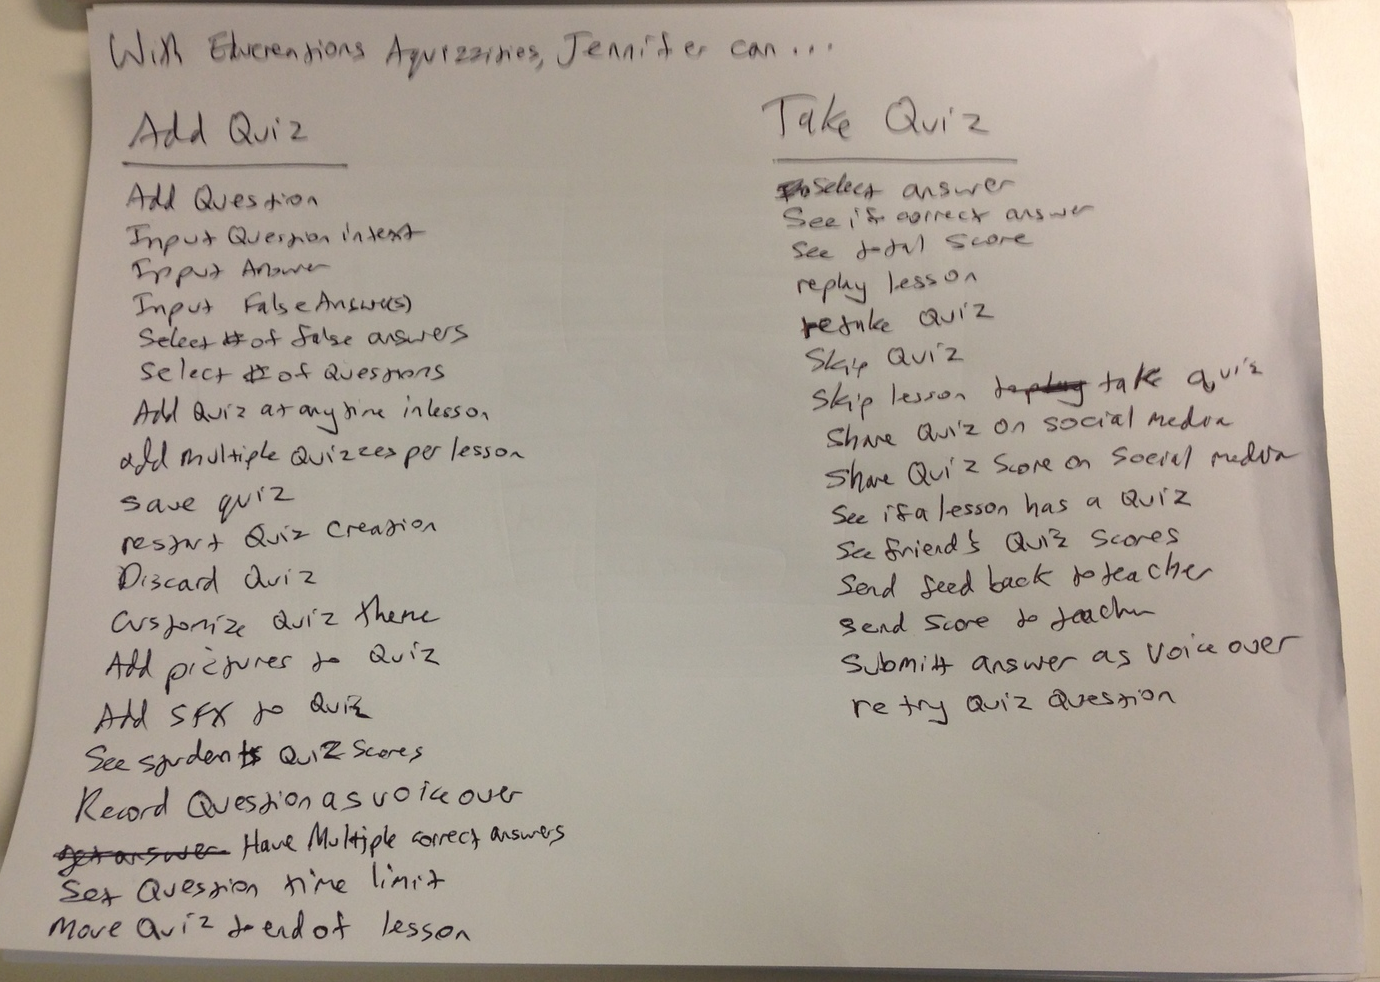 With Educreations Aquizzities, Jennifer can...
Add Quiz
Add Question
Input Question in text
Input Answer
Input False Answer(s)
Select # of false answers
Select # of Questions
Add Quiz at any time in lesson
add multiple Quizzes per lesson
save quiz
restart Quiz Creation
Discard Quiz
Customize Quiz theme
Add pictures to Quiz
Add SFX to Quiz
See students Quiz Scores
Record Question as voice over
get answer Have Multiple correct answers
Set Question time limit
Move Quiz to end of lesson
Take Quiz
Select answer
See if correct answer
See total score
replay lesson
retake Quiz
Skip Quiz
Skip lesson take quiz
Share Quiz on social media
Share Quiz Score on Social media
See if a lesson has a Quiz
See friend's Quiz Scores
Send feed back to teacher
Send Score to teacher
Submitt answer as Voice over
retry Quiz Question